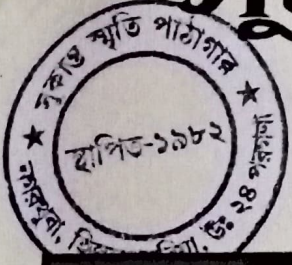 সুকান্ত স্মৃতি পাঠাগার
স্থাপিত-১৯৮২
উঃ ২৪ পরগণা